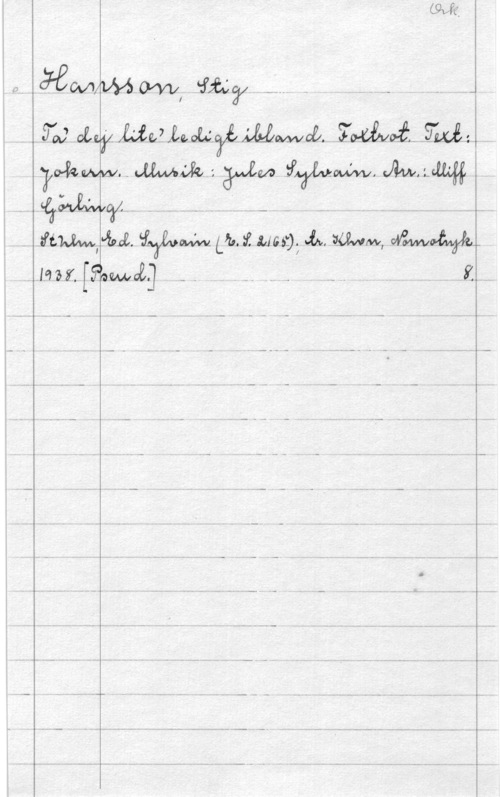 Ork.
Hansson, Stig
Ta' dej lite' ledigt ibland. Foxtrot. Text:
Jokern. Musik: Jules Sylvain. Arr.: Miff
Görling.
Sthlm, Ed. Sylvain (E.S. 2165), tr. Khvn, Nomotryk
1938. [Pseud.] 8.